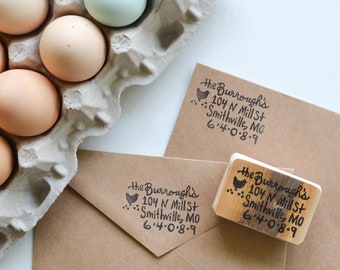 the Burrough's
104 N Mill St
Smithville, MO
6•4•0•8•9
the Burrough's
104 N Mill St
Smithville, MO
6•4•0•8•9
the Burrough's
104 N Mill St
Smithville, MO
6•4•0•8•9